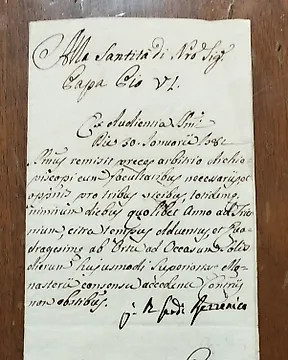 Alla Santità di Nro Sigre
Papa Pio VI.
Ex Audientia SSmi
Die 30. Januarii 178
SSmus remisit preces arbitrio Archie
piscopi cum facultatibus necessariis, et
opp[nis] pro tribus vicibus, totidemq.
nimirum diebus quolibet Anno ad Trie
nium, citra tempus Adventus, et Qua
dragesimæ ab Ortu ad Occasum Solis
ollorum hujusmodi Superioris Mo
nasterii consensu accedente, Contriis
non obstibus.
R. Card.